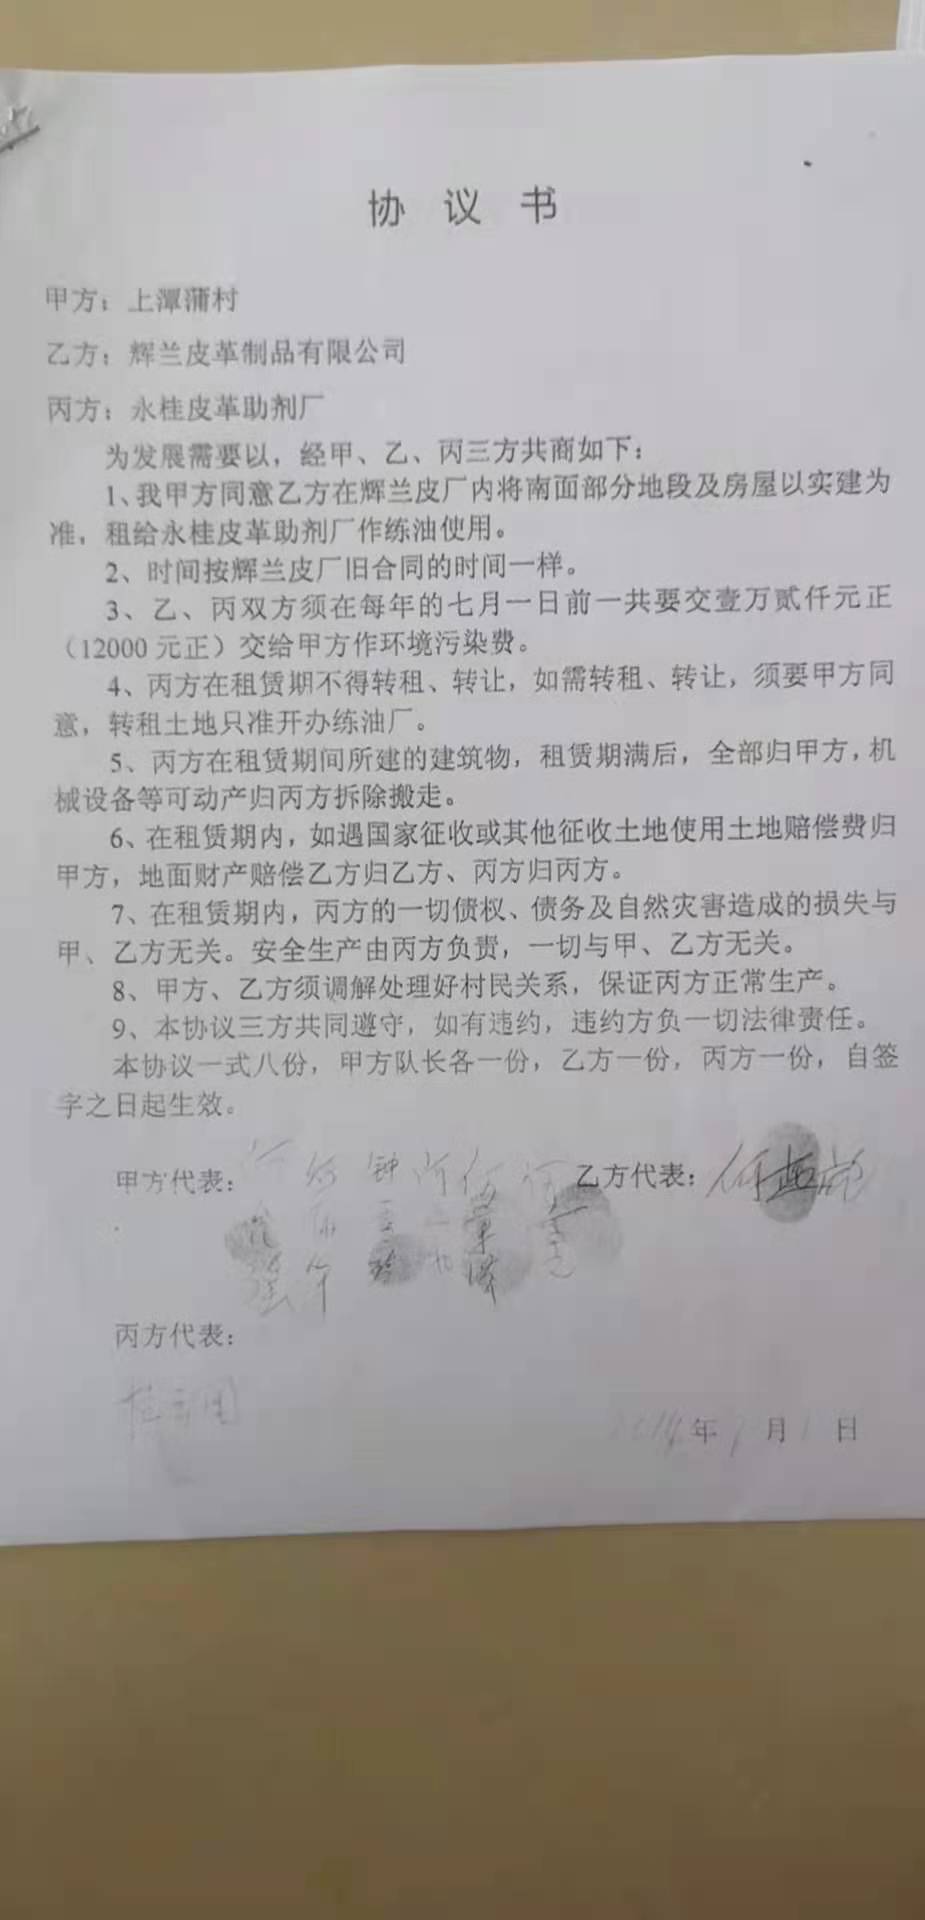 协 议 书
甲方：上潭蒲村
乙方：辉兰皮革制品有限公司
丙方：永桂皮革助剂厂
为发展需要以，经甲、乙、丙三方共商如下：
1、我甲方同意乙方在辉兰皮厂内将南面部分地段及房屋以实建为
准，租给永桂皮革助剂厂作练油使用。
2、时间按辉兰皮厂旧合同的时间一样。
3、乙、丙双方须在每年的七月一日前一共要交壹万贰仟元正
（12000 元正）交给甲方作环境污染费。
4、丙方在租赁期不得转租、转让，如需转租、转让，须要甲方同
意，转租土地只准开办练油厂。
5、丙方在租赁期间所建的建筑物，租赁期满后，全部归甲方，机
械设备等可动产归丙方拆除搬走。
6、在租赁期内，如遇国家征收或其他征收土地使用土地赔偿费归
甲方，地面财产赔偿乙方归乙方、丙方归丙方。
7、在租赁期内，丙方的一切债权、债务及自然灾害造成的损失与
甲、乙方无关。安全生产由丙方负责，一切与甲、乙方无关。
8、甲方、乙方须调解处理好村民关系，保证丙方正常生产。
9、本协议三方共同遵守，如有违约，违约方负一切法律责任。
本协议一式八份，甲方队长各一份，乙方一份，丙方一份，自签
字之日起生效。
甲方代表：
乙方代表：
丙方代表：
2014年 月1日